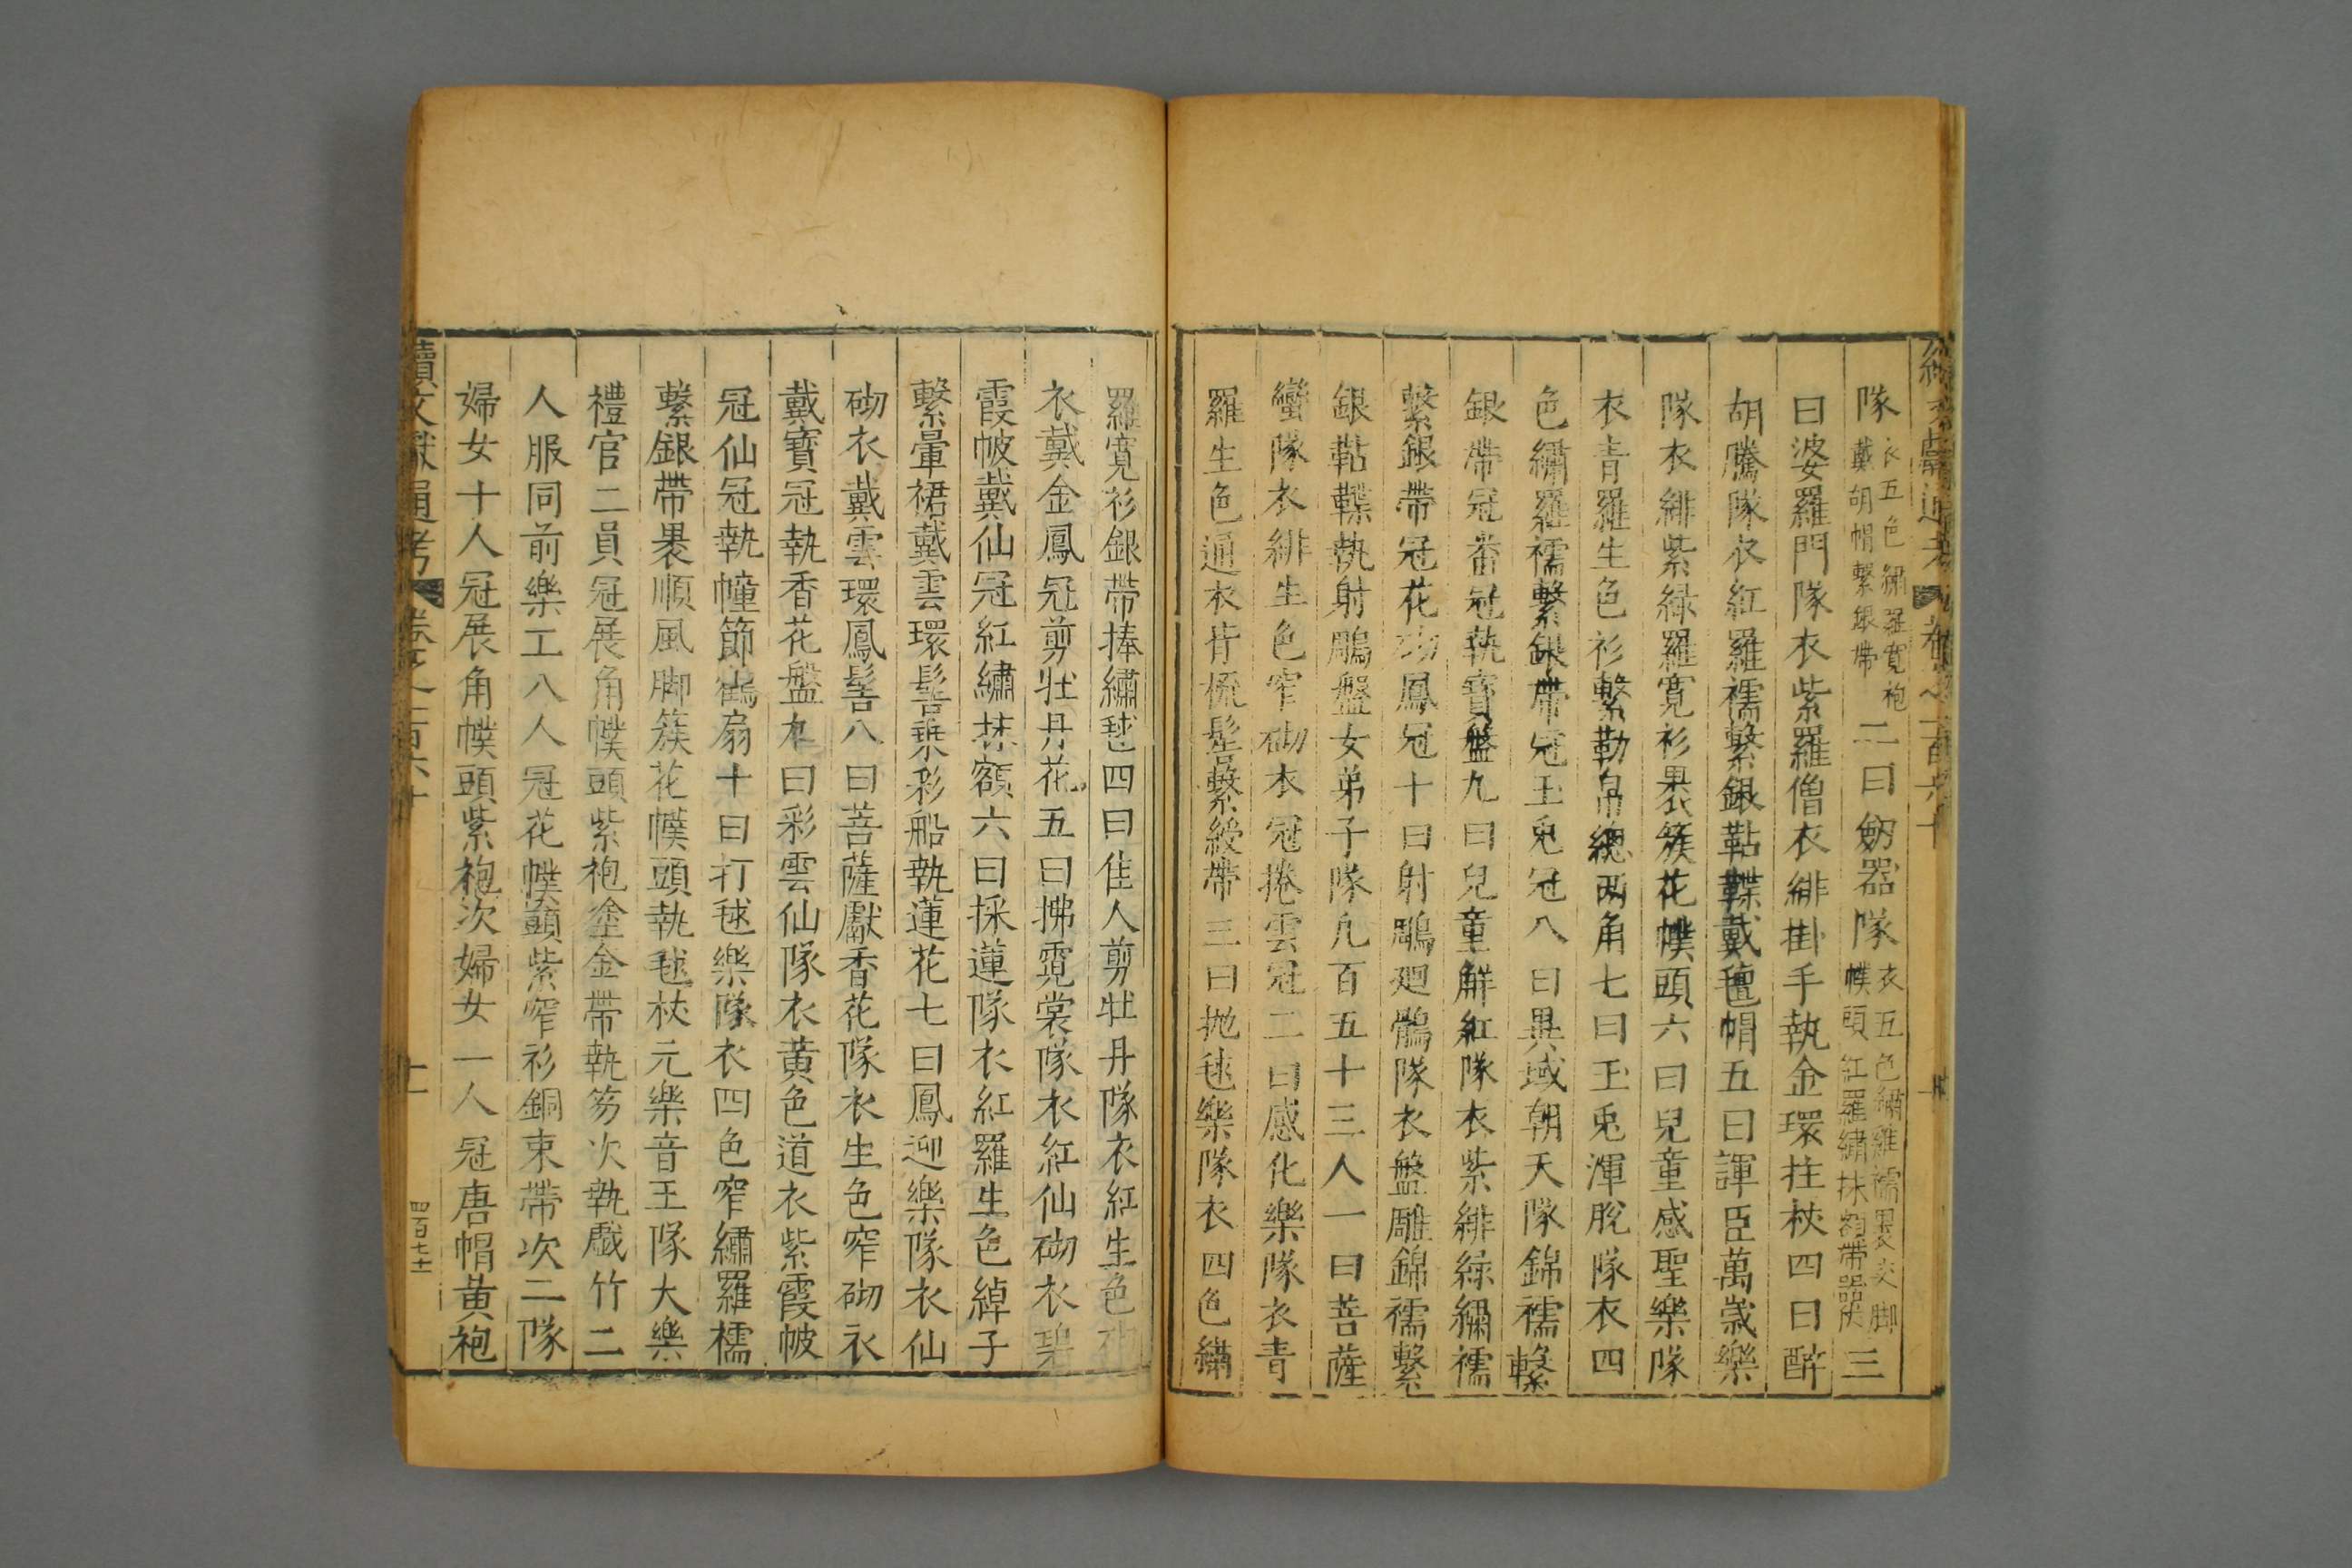 隊衣五色繡羅寬袍戴胡帽繫銀帶二曰劒器隊衣五色繡羅襦裹交脚幞頭紅羅繡抹額帶器仗三
曰婆羅門隊衣紫羅僧衣緋掛子執金環拄杖四曰醉
胡騰隊衣紅羅襦繫銀鞊鞢戴氊帽五曰諢臣萬歲樂
隊衣緋紫綠羅寬衫裹簇花幞頭六曰兒童感聖樂隊
衣青羅生色衫繫勒帛總兩角七曰玉兎渾脫隊衣四
色繡羅襦繫銀帶冠玉兎冠八曰異域朝天隊錦襦繫
銀帶冠番冠執寶盤九曰兒童觧紅隊衣紫緋綠繡襦
繫銀帶冠花砌鳳冠十曰射鵰廻鶻隊衣盤雕錦襦繫
銀鞊鞢執射鵰盤女弟子隊凡百五十三人一曰菩薩
蠻隊衣緋生色窄砌衣冠捲雲冠二曰感化樂隊衣青
羅生色通衣背梳髻繫綬帶三曰抛毬樂隊衣四色繡
羅寬衫銀帶捧繡毬四曰佳人剪牡丹隊衣紅生色砌
衣戴金鳳冠剪牡丹花五曰拂霓裳隊衣紅仙砌衣碧
霞帔戴仙冠紅繡抹額六曰採蓮隊衣紅羅生色綽子
繫暈裙戴雲環髻乗彩船執蓮花七曰鳳迎樂隊衣仙
砌衣戴雲環鳳髻八曰菩薩獻香花隊衣生色窄砌衣
戴寶冠執香花盤九曰彩雲仙隊衣黃色道衣紫霞帔
冠仙冠執幢節鶴扇十曰打毬樂隊衣四色窄繡羅襦
繫銀帶褁順風脚簇花幞頭執毬杖元樂音王隊大樂
禮官二員冠展角幞頭紫袍塗金帶執笏次執戲竹二
人服同前樂工八人冠花幞頭紫窄衫銅束帶次二隊
婦女十人冠展角幞頭紫袍次婦女一人冠唐帽黃袍
續文獻通考 卷之一百六十